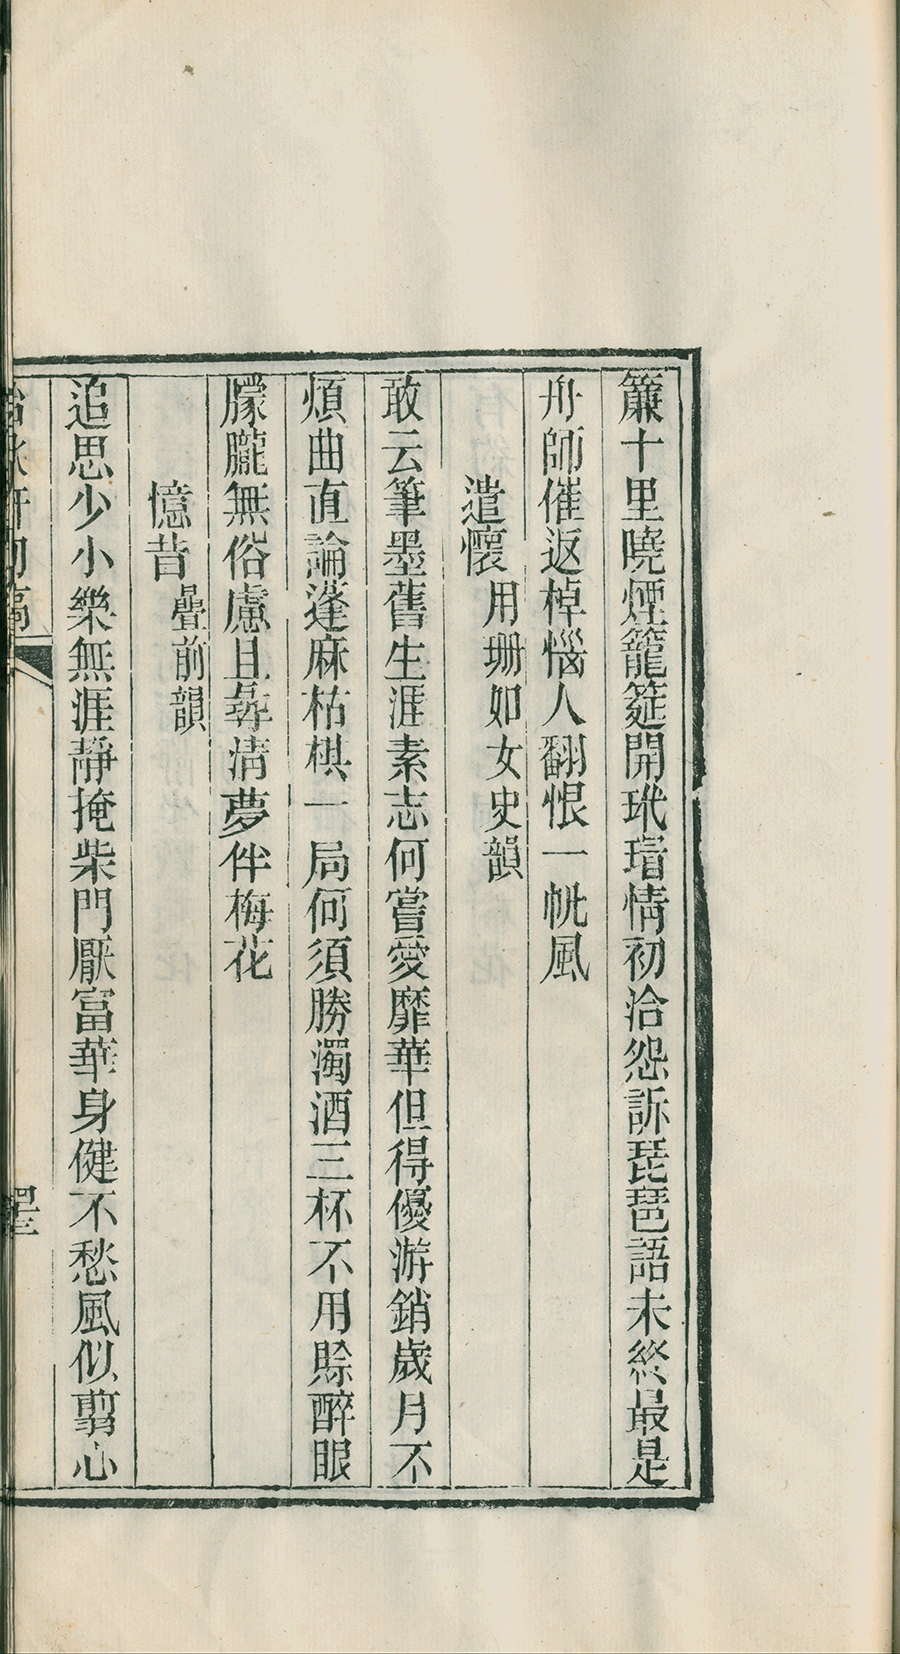 簾十里曉煙籠筵開玳瑁情初洽怨訴琵琶語未終最是
舟師催返棹惱人翻恨一帆風
遣懷 用珊如女史韻
敢云筆墨舊生涯素志何嘗愛靡華但得優游銷歲月不
煩曲直論蓬麻枯棋一局何須勝濁酒三杯不用賒醉眼
朦朧無俗慮且尋清夢伴梅花
憶昔 疊前韻
追思少小樂無涯靜掩柴門厭富華身健不愁風似翦心